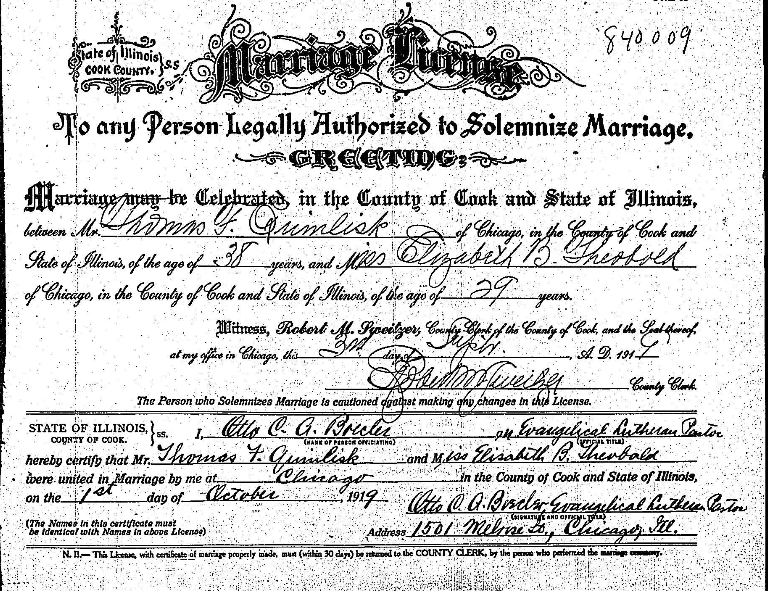 840009
State of Illinois
COOK COUNTY. } SS
Marriage License
To any Person Legally Authorized to Solemnize Marriage,
GREETING:
Marriage may be Celebrated, in the County of Cook and State of Illinois,
between Mr. Thomas F. Quinlisk of Chicago, in the County of Cook and
State of Illinois, of the age of 38 years, and Miss Elizabeth B. Theobold
of Chicago, in the County of Cook and State of Illinois, of the age of 29 years.
Witness, Robert M. Sweitzer, County Clerk of the County of Cook, and the Seal thereof,
at my office in Chicago, this day of A. D. 191
Robert M Sweitzer County Clerk.
The Person who Solemnizes Marriage is cautioned against making any changes in this License.
STATE OF ILLINOIS, } ss. I, Otto C. A. Boecler an Evangelical Lutheran Pastor
COUNTY OF COOK. (NAME OF PERSON OFFICIATING) (OFFICIAL TITLE)
hereby certify that Mr. Thomas F. Quinlisk and Miss Elisabeth B. Theobald
were united in Marriage by me at Chicago in the County of Cook and State of Illinois,
on the 1st day of October 1919 Otto C. A. Boecler, Evangelical Lutheran Pastor
(SIGNATURE AND OFFICIAL TITLE)
(The Names in this certificate must
be identical with Names in above License) Address 1501 Melrose St., Chicago, Ill.
N. B.— This License, with certificate of marriage properly made, must (within 30 days) be returned to the COUNTY CLERK, by the person who performed the marriage ceremony.